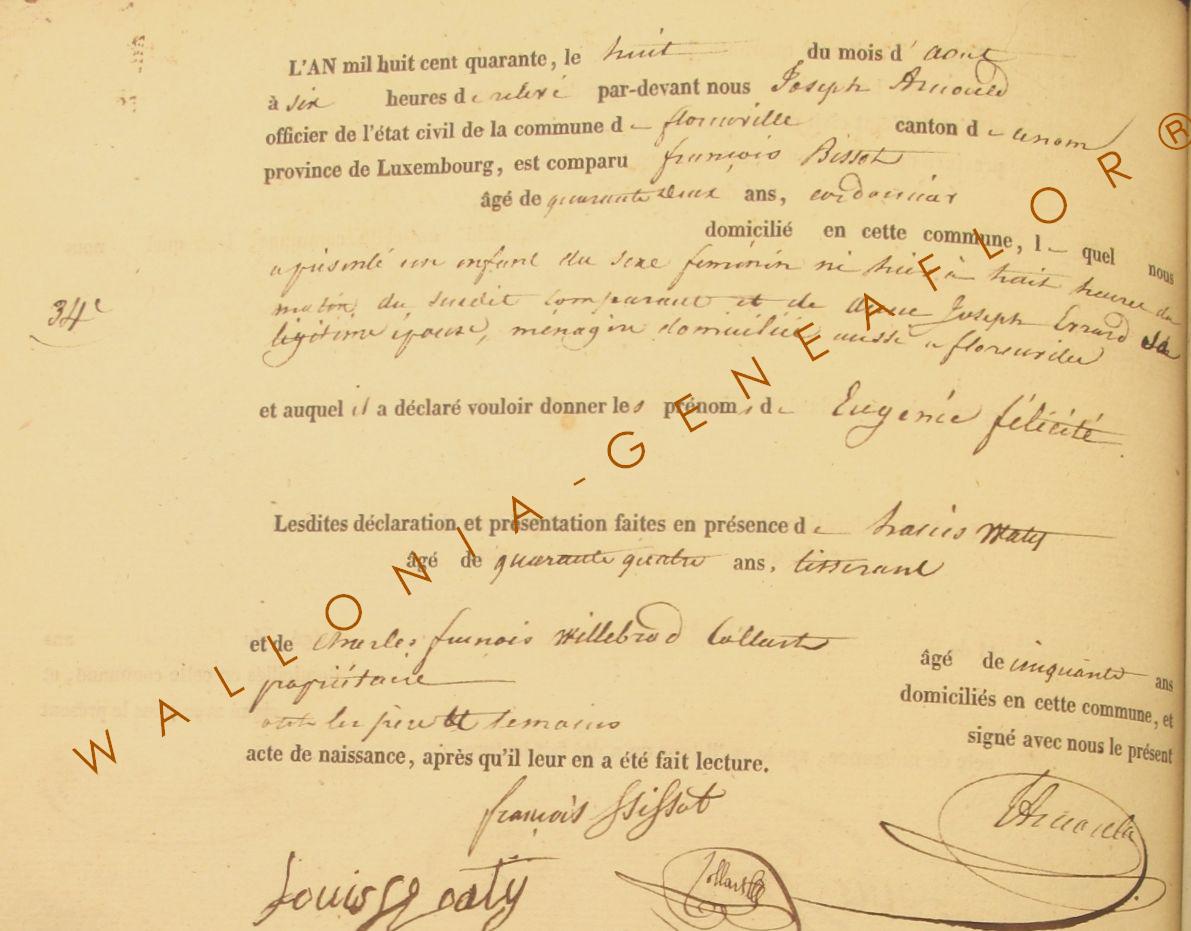 L'AN mil huit cent quarante, le huit du mois d' aout
à six heures de relevé par-devant nous Joseph Arnould
officier de l'état civil de la commune de florenville canton de
province de Luxembourg, est comparu françois Bissot
âgé de quarante deux ans, cordonnier
domicilié en cette commune, le quel nous
a présenté un enfant du sexe féminin né huit à huit heures du
34e
matin, du susdit comparant et de Anne Joseph Errard sa
légitime épouse, ménagère domiciliée aussi a florenville
et auquel il a déclaré vouloir donner les prénoms de Eugénie félicité
Lesdites déclaration et présentation faites en présence de Waty
âgé de quarante quatre ans, tisserant
et de Charles françois Willebrod Collart âgé de cinquante ans
propriétaire domiciliés en cette commune, et
ont les père et temoins signé avec nous le présent
acte de naissance, après qu'il leur en a été fait lecture.
françois Bissot
JArnould
Louis Waty
Collart
WALLONIA-GENEAFLOR®